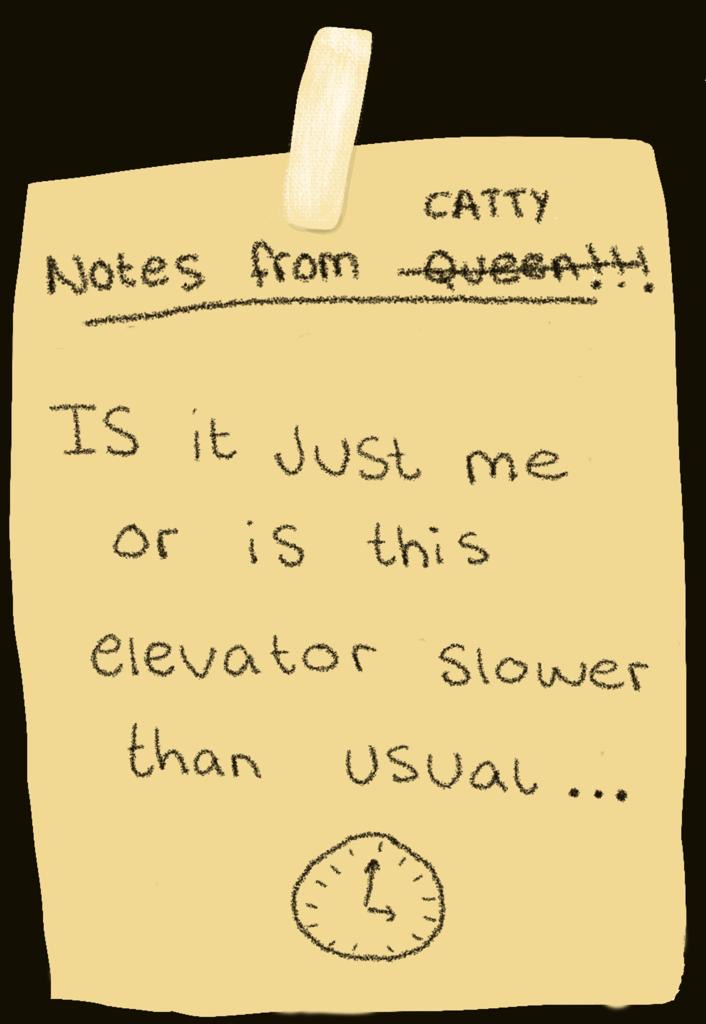 CATTY
Notes from Queen!!!
Is it Just me
or is this
elevator slower
than usual...